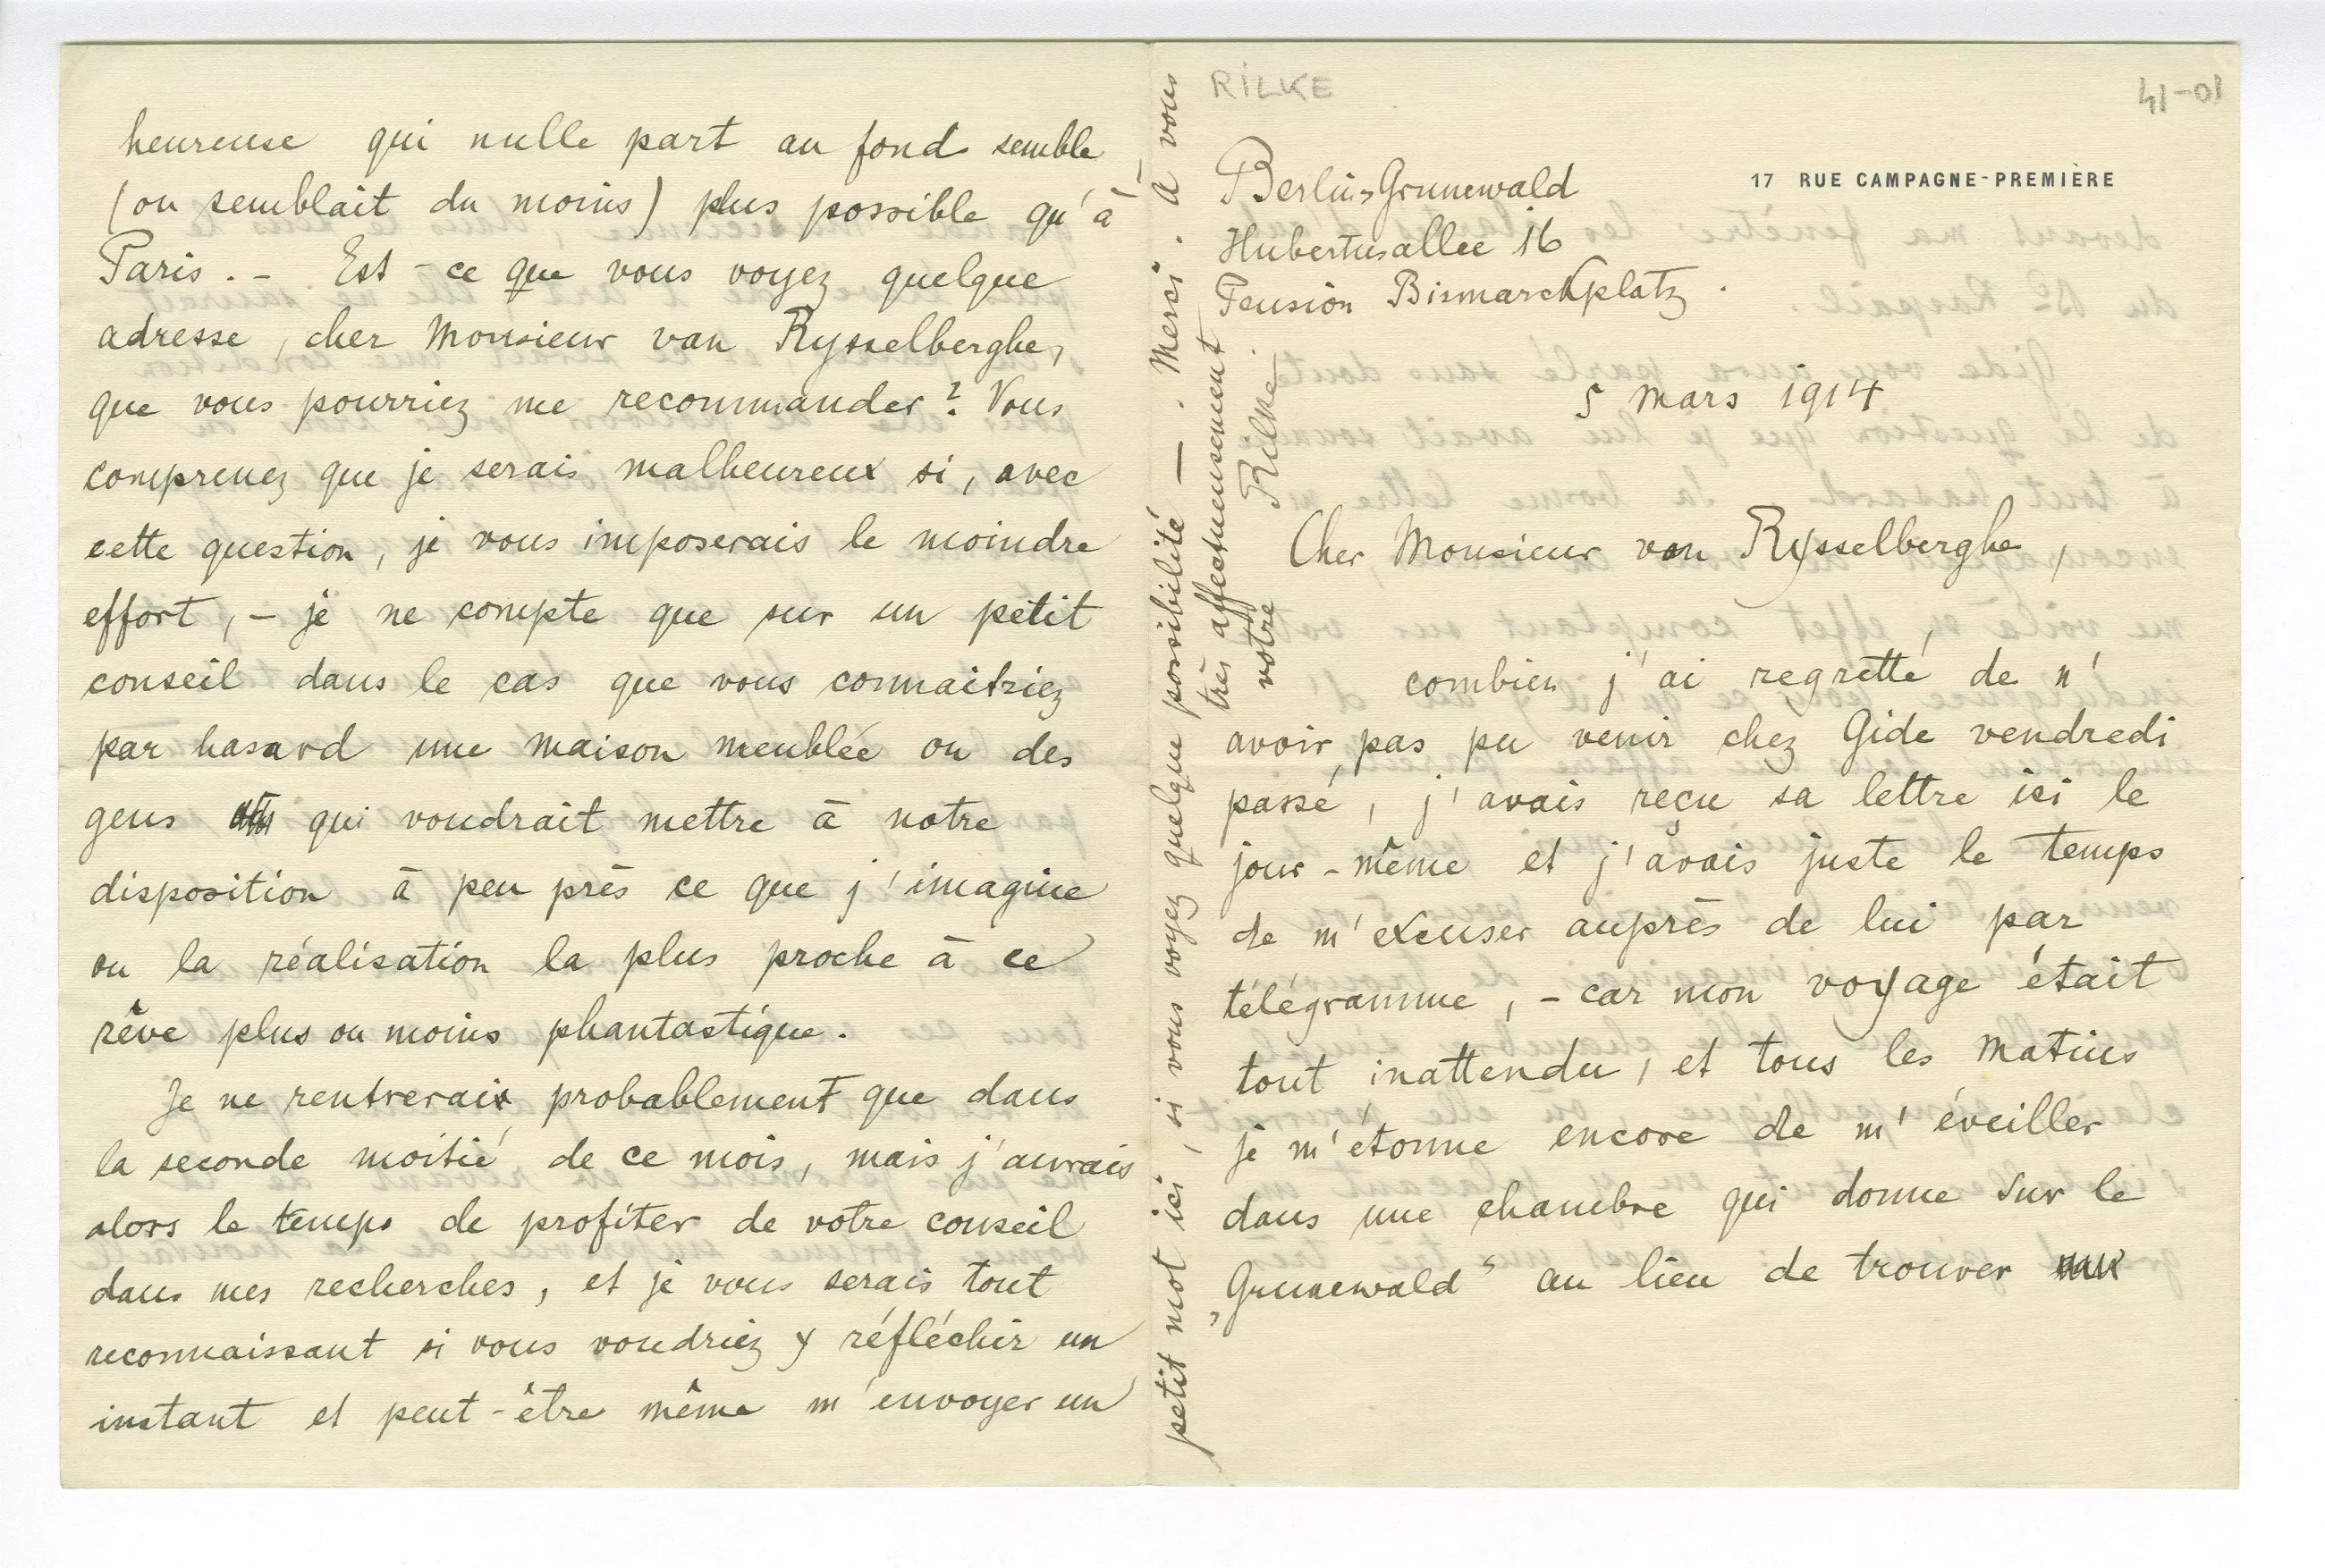 RILKE
41-01
17 RUE CAMPAGNE-PREMIÈRE
Berlin-Grunewald
Hubertusallee 16
Pension Bismarckplatz.
5 mars 1914
Cher Monsieur van Rysselberghe,
combien j'ai regretté de n'
avoir pas pu venir chez Gide vendredi
passé, j'avais reçu sa lettre ici le
jour-même et j'avais juste le temps
de m'excuser auprès de lui par
télégramme, - car mon voyage était
tout inattendu, et tous les matins
je m'étonne encore de m'éveiller
dans une chambre qui donne sur le
„Grunewald“ au lieu de trouver
heureuse qui nulle part au fond semble
(ou semblait du moins) plus possible qu'à
Paris. - Est-ce que vous voyez quelque
adresse, cher Monsieur van Rysselberghe,
que vous pourriez me recommander? Vous
comprenez que je serais malheureux si, avec
cette question, je vous imposerais le moindre
effort, - je ne compte que sur un petit
conseil dans le cas que vous connaitriez
par hasard une maison meublée ou des
gens qui voudrait mettre à notre
disposition à peu près ce que j'imagine
ou la réalisation la plus proche à ce
rêve plus ou moins phantastique.
Je ne rentrerais probablement que dans
la seconde moitié de ce mois, mais j'aurais
alors le temps de profiter de votre conseil
dans mes recherches, et je vous serais tout
reconnaissant si vous voudriez y réfléchir un
instant et peut-être même m'envoyer un
petit mot ici, si vous voyez quelque possibilité —. Merci. A vous
très affectueusement
votre Rilke.